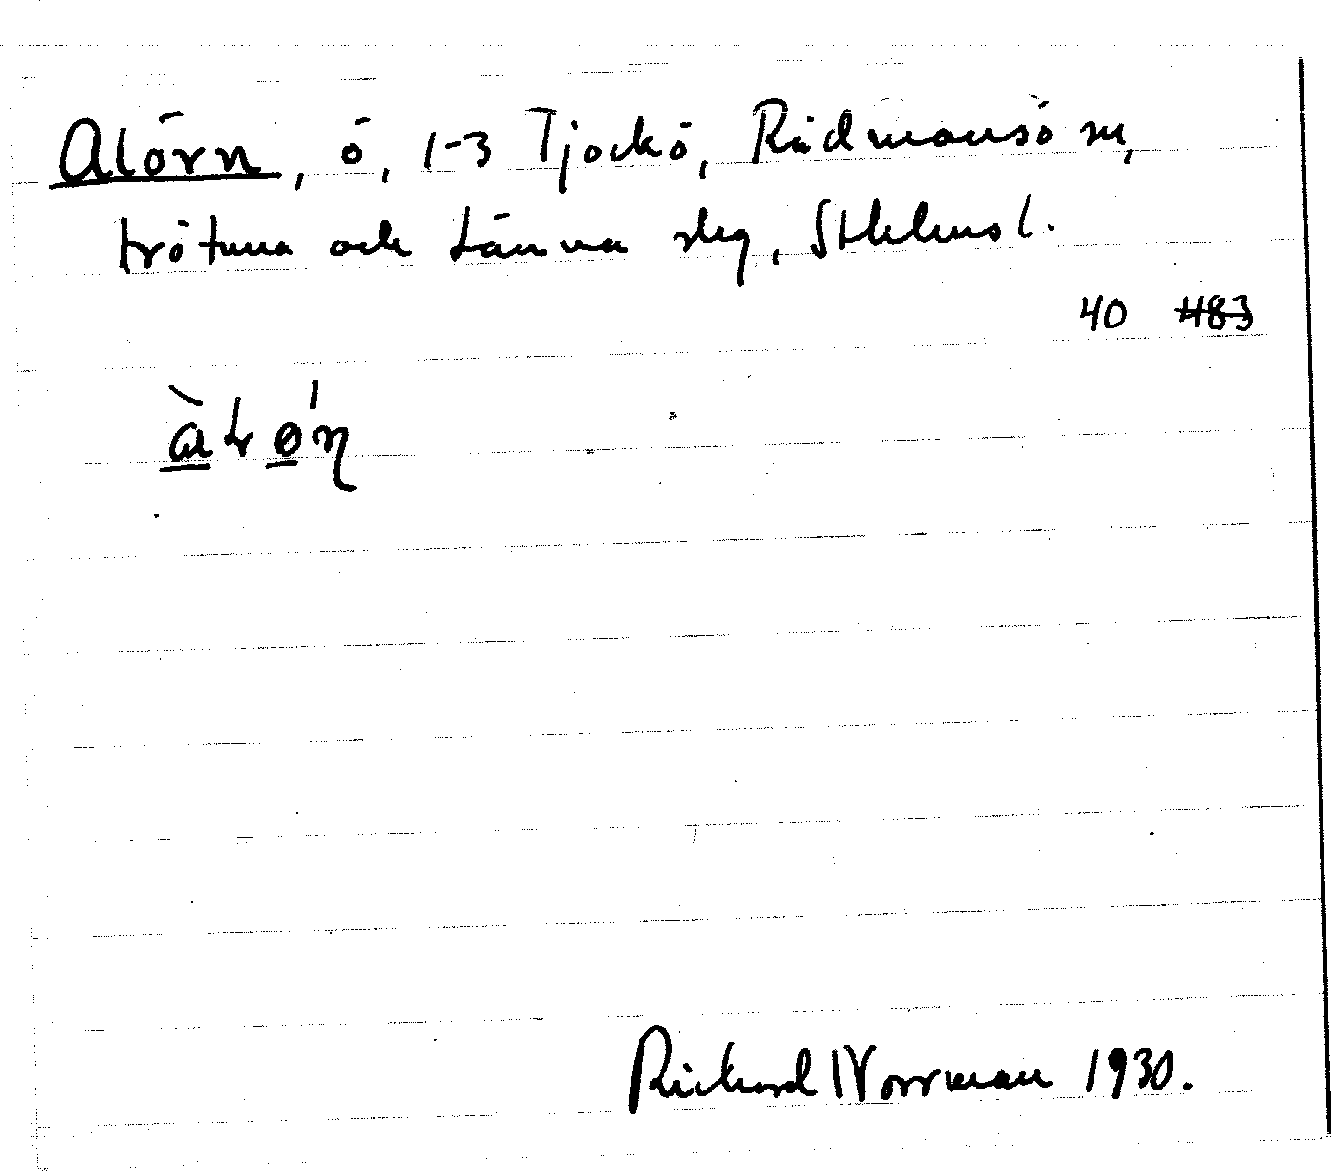 Alörn, ö, 1-3 Tjockö, Rådmansö sn,
Frötuna och Länna slg, Sthlms l.
40 483
Rickard Norrman 1930.